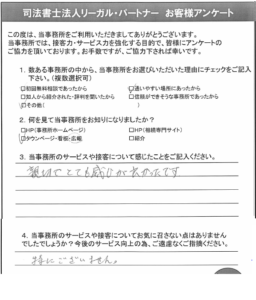 司法書士法人リーガル・パートナー お客様アンケート
この度は、当事務所をご利用いただきましてありがとうございます。
当事務所では、接客力・サービス力を強化する目的で、皆様にアンケートの
ご協力を頂いております。お手数ですが、ご協力下されば幸いです。
1. 数ある事務所の中から、当事務所をお選びいただいた理由にチェックをご記入
下さい。(複数選択可)
□初回無料相談であったから □通いやすい場所にあったから
□知人から紹介された・評判を聞いたから □信頼ができそうな事務所であったから
☑その他( )
2. 何を見て当事務所をお知りになりましたか?
□HP(事務所ホームページ) □HP(相続専門サイト)
☑タウンページ・看板・広報 □紹介
3. 当事務所のサービスや接客について感じたことをご記入ください。
親切でとても感じが良かったです
4. 当事務所のサービスや接客についてお気に召さない点はありません
でしたでしょうか?今後のサービス向上の為、ご遠慮なくご指摘ください。
特にございません。